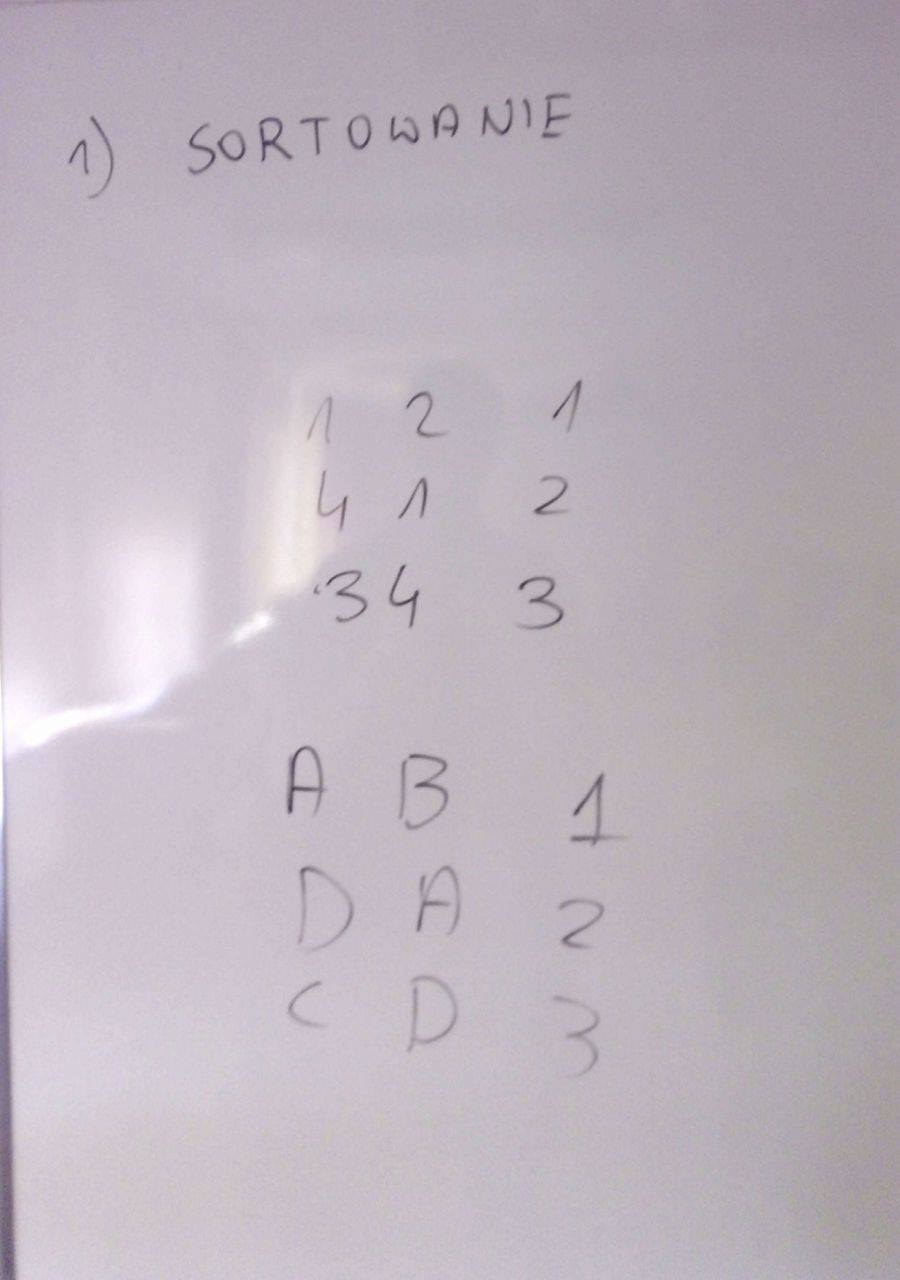 1) SORTOWANIE
1 2 1
4 1 2
3 4 3
A B 1
D A 2
C D 3